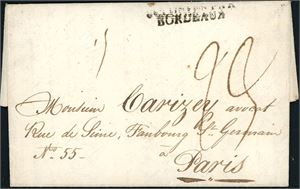 BORDEAUX
20
Monsieur Carizey avocat
Rue de Seine, Faubourg St. Germain
No 55-
à
Paris